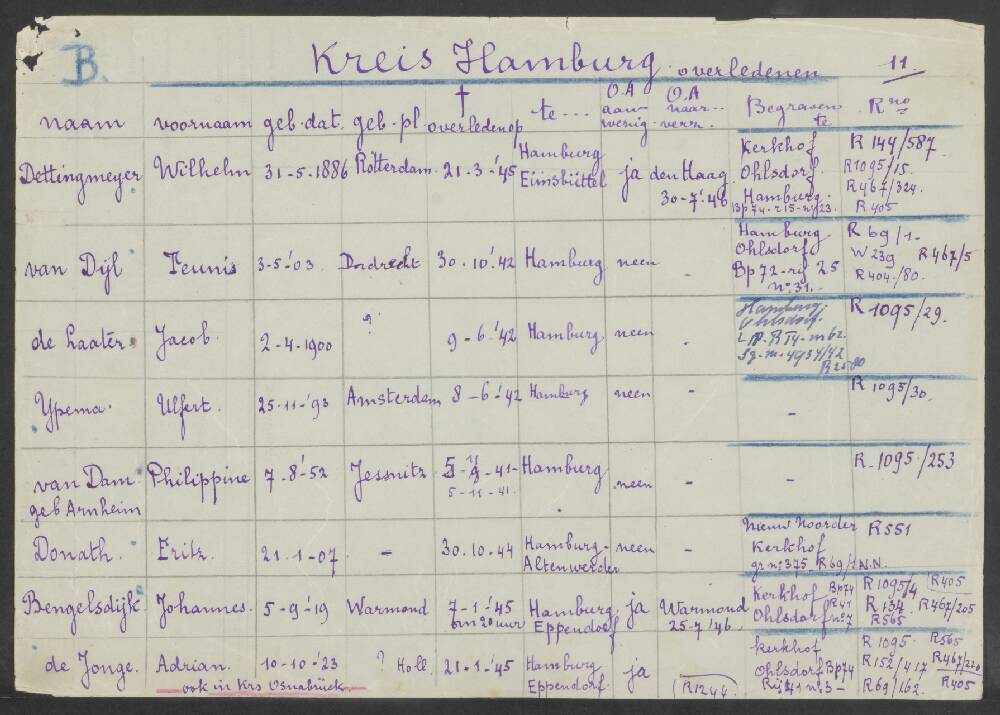 B. Kreis Hamburg overledenen 11
naam voornaam geb. dat. geb. pl. † overleden op te... O.A aanwezig. O.A naar... verz. Begraven te R no
Dettingmeyer Wilhelm 31-5-1886 Rotterdam 21-3-'45 Hamburg Eimsbüttel ja den Haag 30-7-'46 Kerkhof Ohlsdorf Hamburg. Bp74-r15-nr23. R 144/587. R1095/15. R467/324. R405
van Dijl Teunis 3-5-'03 Dordrecht 30.10.'42 Hamburg neen - Hamburg Ohlsdorf Bp72-rij 25 no.31.- R 69/1- W239 R467/5 R404/80.
de Laater Jacob. 2-4-1900 ? 9-6.'42 Hamburg neen . Hamburg. Ohlsdorf. R1095/29.
Ypema. Ulfert. 25.11-'93 Amsterdam 8-6-'42 Hamburg neen - - R 1095/30.
van Dam geb Arnheim Philippine 7-8-'52 Jessnitz 5-11-41- 5-11-41. Hamburg neen - - R.1095/253
Donath. Fritz. 21.1-07. - 30.10.44 Hamburg-Altenwerder neen - Nieuw Noorder Kerkhof gr.no:375. R69/1 N.N. R551
Bengelsdijk Johannes. 5-9-'19 Warmond 7-1-'45 om 20 uur Hamburg Eppendorf ja Warmond 25-7-'46. Kerkhof Ohlsdorf Bp74 R41 no7 R1095/4 R405 R134. R467/205 R565
de Jonge. Adrian. 10-10-'23 ? Holl 21-1-'45 Hamburg Eppendorf. ja R1244. Kerkhof Ohlsdorf Bp74 Rij 41 n.3- R1095. R565 R152/417 R467/220 R69/162. R405
ook in Krs Osnabrück